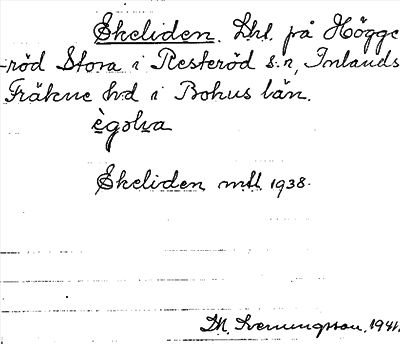 Skeliden. Lht. på Högge
-röd Stora i Resteröd s:n, Inlands
Fräkne hd i Bohus län.
ègoħva
Skeliden mtl. 1938.
M. Svenungsson, 1941.